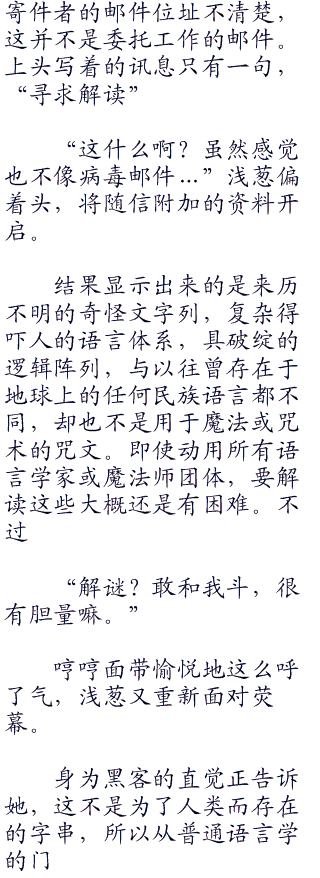 寄件者的邮件位址不清楚，
这并不是委托工作的邮件。
上头写着的讯息只有一句，
“寻求解读”
“这什么啊？虽然感觉
也不像病毒邮件…”浅葱偏
着头，将随信附加的资料开
启。
结果显示出来的是来历
不明的奇怪文字列，复杂得
吓人的语言体系，具破绽的
逻辑阵列，与以往曾存在于
地球上的任何民族语言都不
同，却也不是用于魔法或咒
术的咒文。即使动用所有语
言学家或魔法师团体，要解
读这些大概还是有困难。不
过
“解谜？敢和我斗，很
有胆量嘛。”
哼哼面带愉悦地这么呼
了气，浅葱又重新面对荧
幕。
身为黑客的直觉正告诉
她，这不是为了人类而存在
的字串，所以从普通语言学
的门